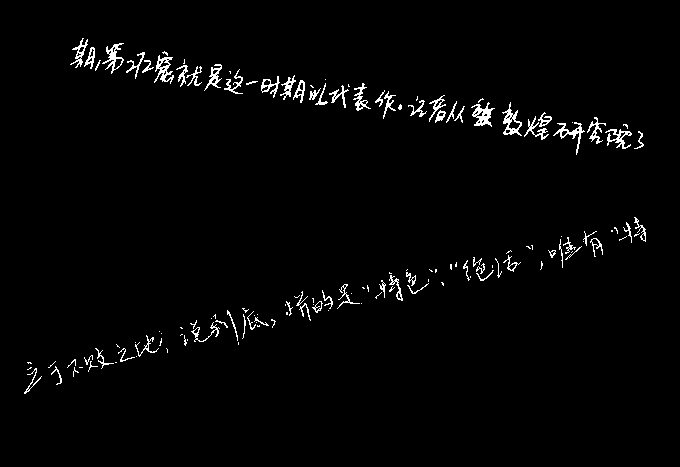 期,第272窟就是这一时期的代表作。记者从敦煌研究院了
立于不败之地；说到底，拼的是“特色”、“绝活”，唯有“特